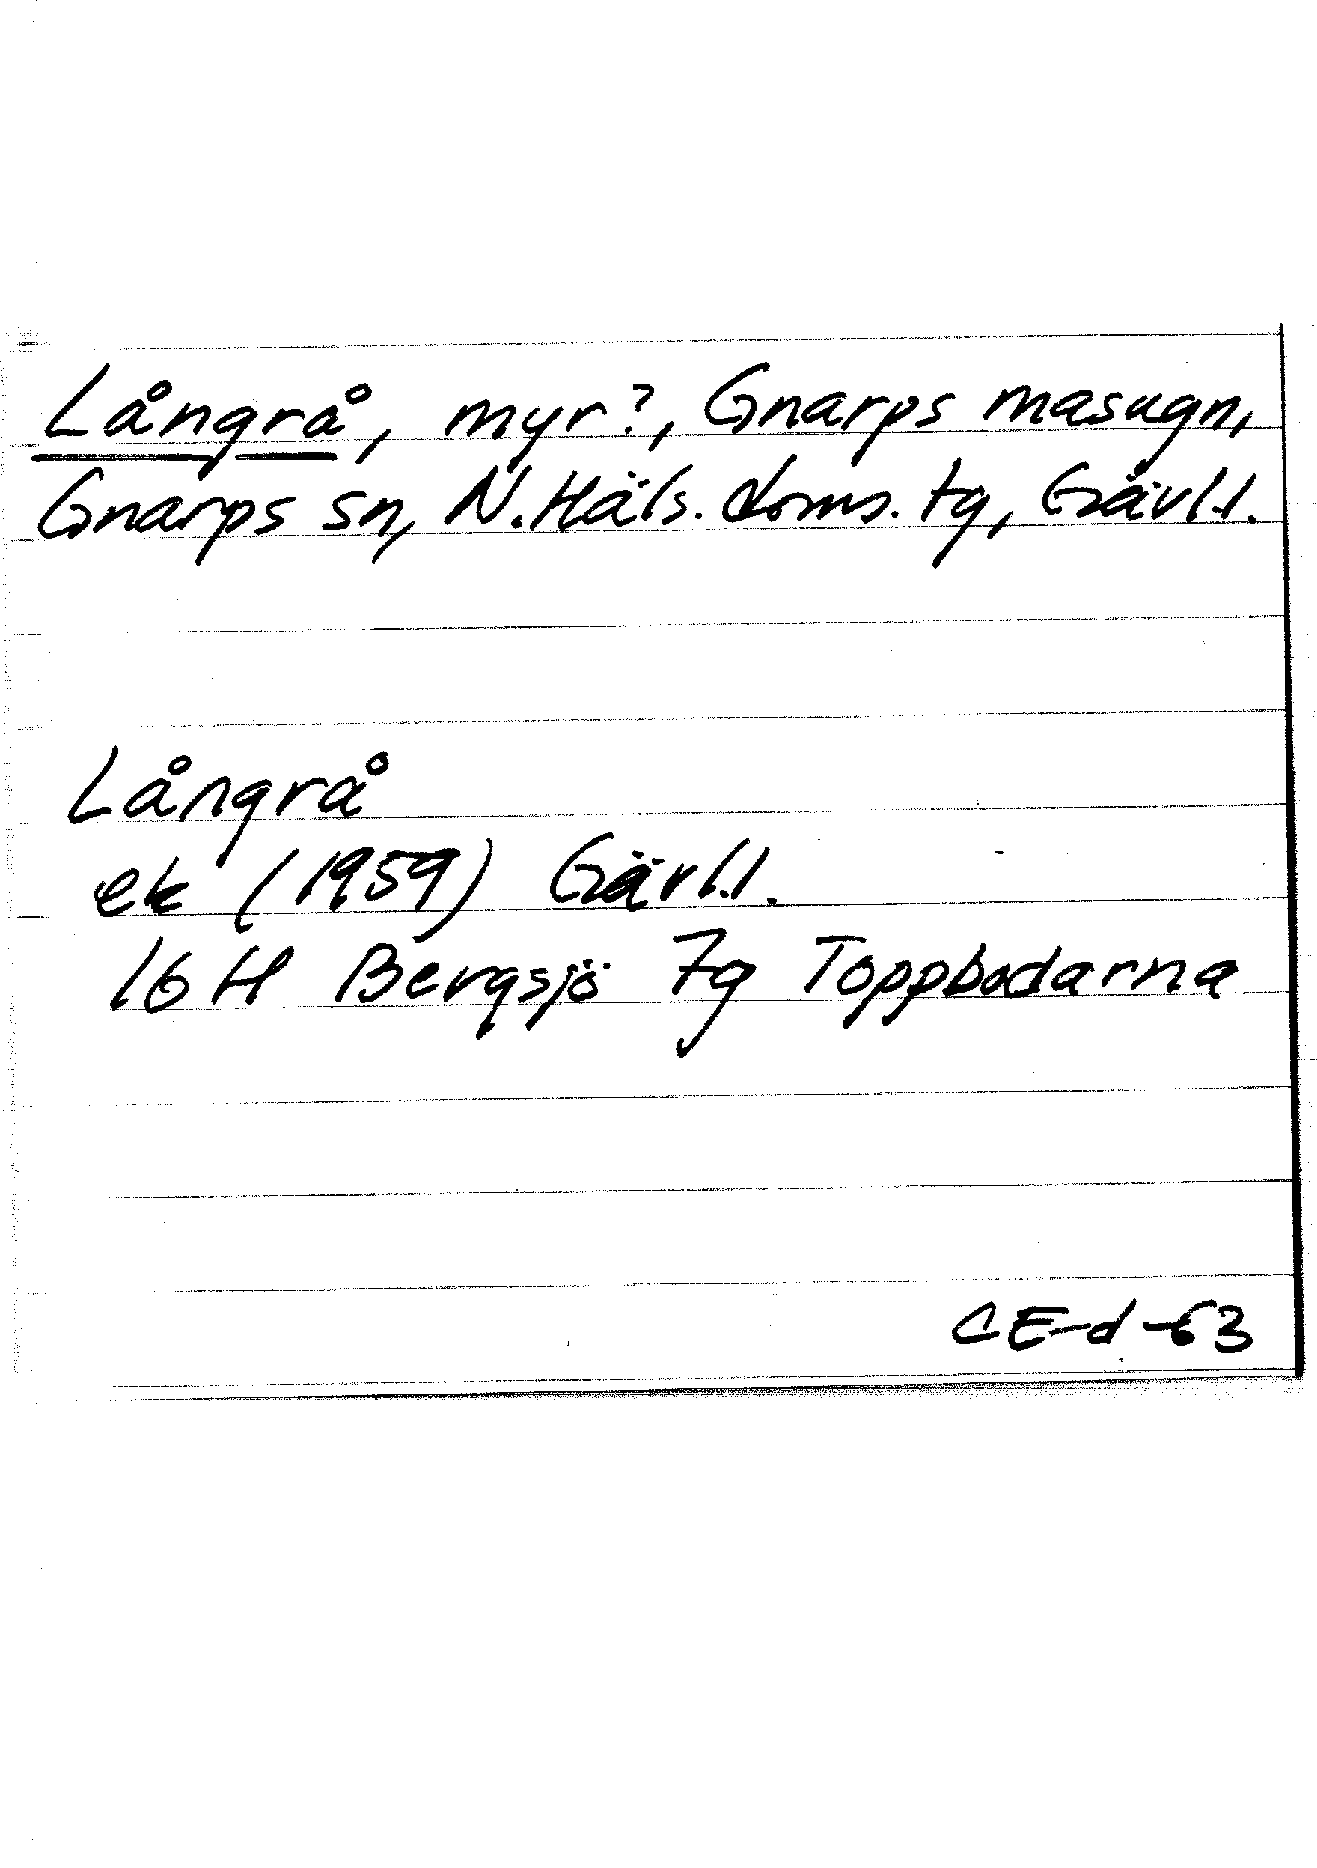 Långrå, myr?, Gnarps masugn,
Gnarps sn, N. Häls. doms. tg, Gävl.l.
Långrå
ek (1959) Gävl.l.
16 H Bergsjö 7g Toppbodarna
CE-d-63